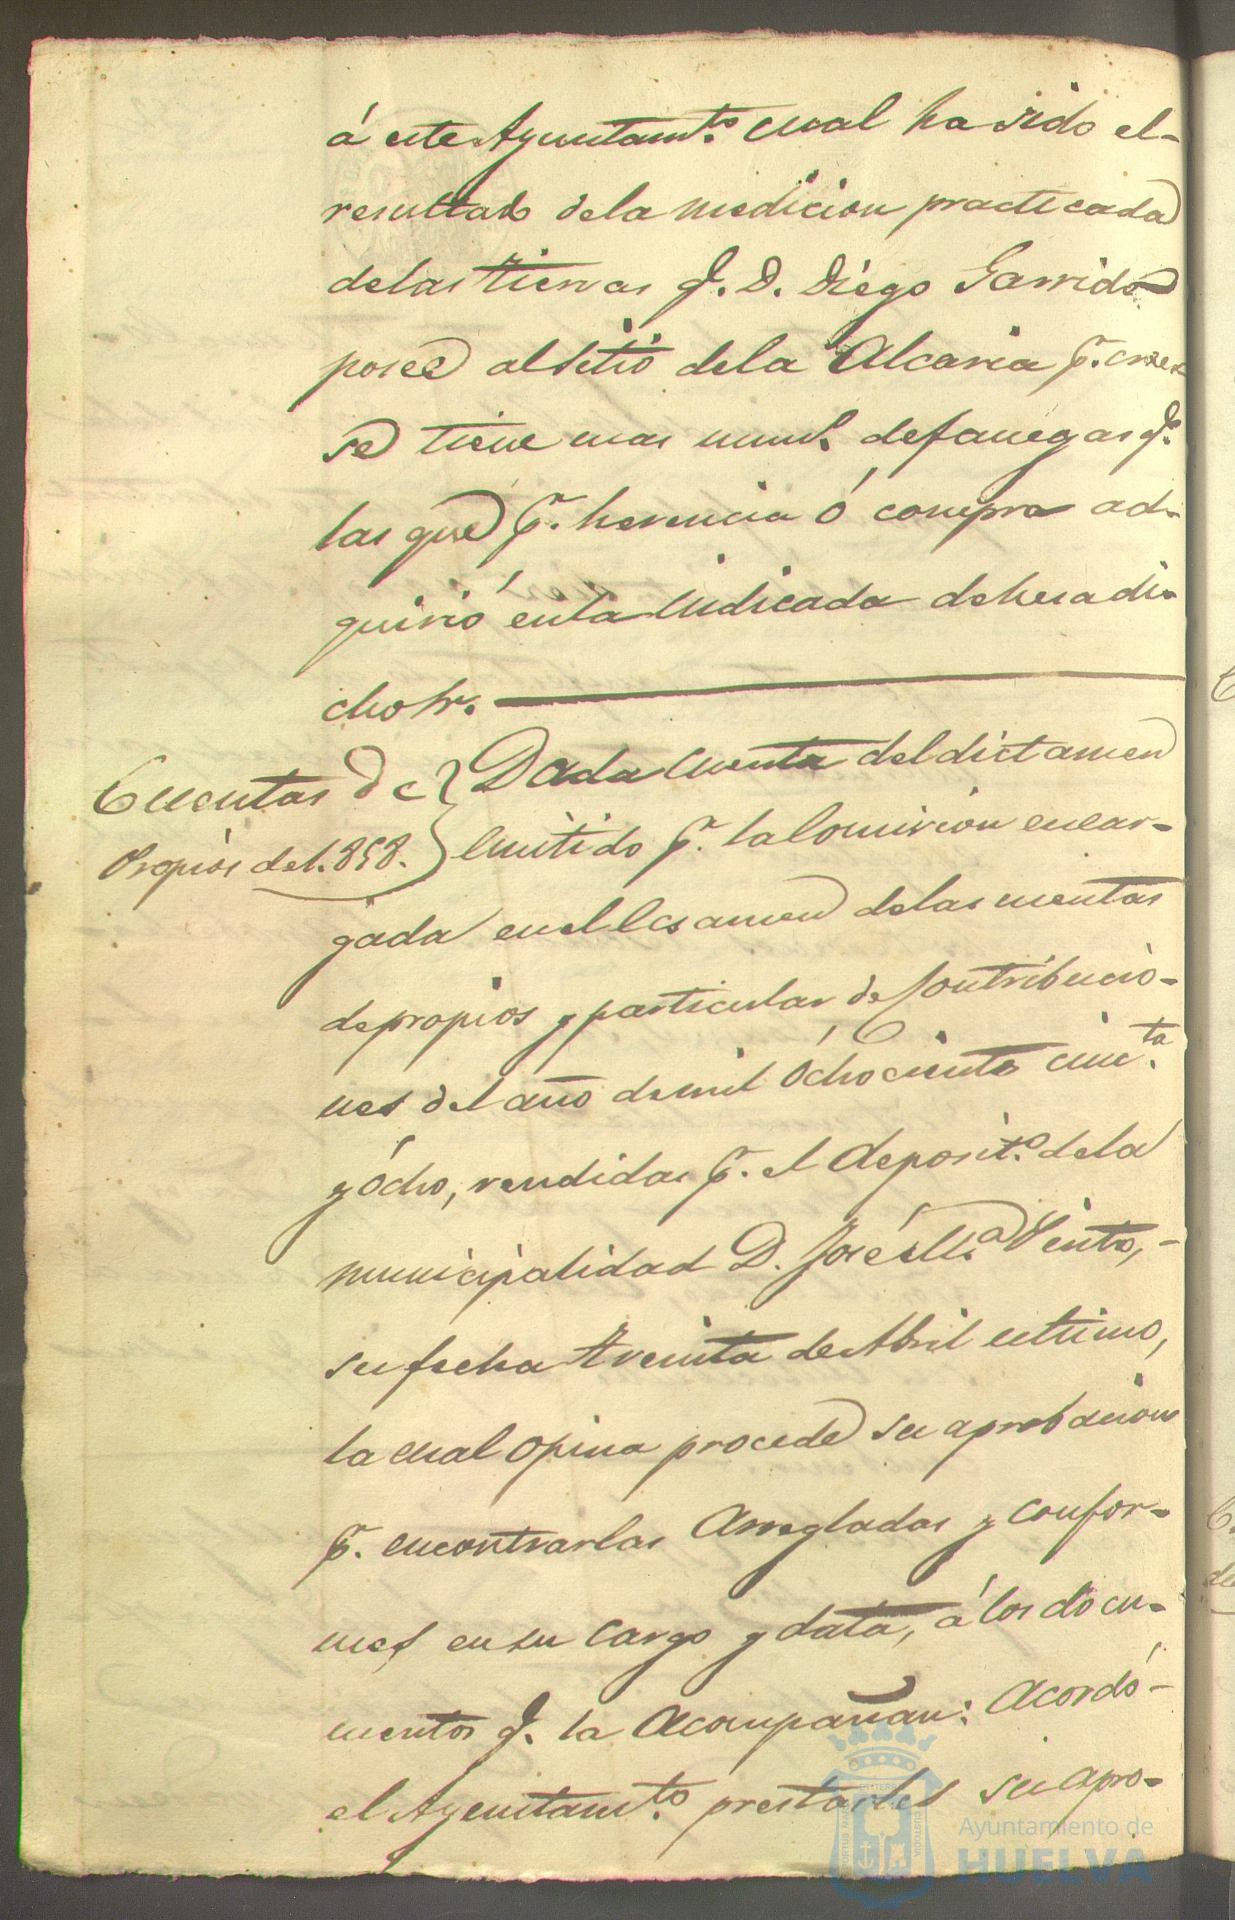 á este Ayuntam.to cual ha sido el-
resultado dela medicion practicada
delas tierras q.e D. Diego Garrido
posee al sitio dela Alcaria p.r creer
se tiene mas num.o defanegas q.e
las que p.r herencia ó compra ad-
quirió enla indicada dehesa di-
cho Sr.
Cuentas de
Propios del.858.
Dada cuenta del dictamen
emitido p.r la Comision encar-
gada enel Ecsamen delas cuentas
depropios y particular de Contribucio-
nes del año demil óchociento cinc.ta
y ócho, rendidas p.r el deposit.o dela
municipalidad D. José M.a Pinto,-
su fecha treinta de Abril ultimo,
la cual opina procede su aprobacion
p.r encontrarlas arregladas y confor-
mes en su cargo y data, á los docu-
mentos q.e la acompañan: acordó-
el Ayuntam.to prestarles su apro-
Ayuntamiento de
HUELVA